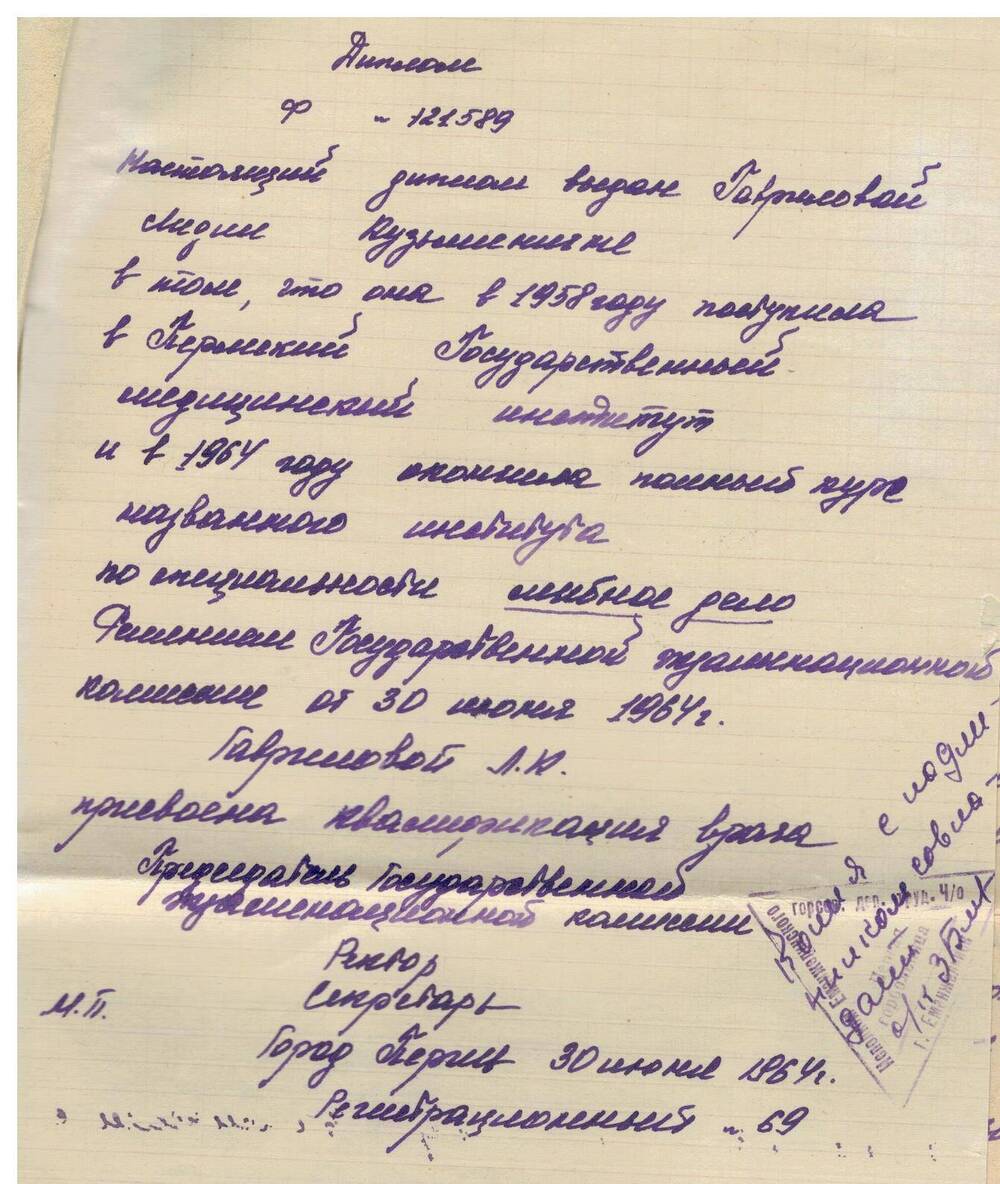 Диплом
Ф № 121589
Настоящий диплом выдан Гавриловой
Лидии Кузьминичне
в том, что она в 1958 году поступила
в Пермский Государственный
медицинский институт
и в 1964 году окончила полный курс
названного института
по специальности лечебное дело
Решением Государственной экзаменационной
комиссии от 30 июня 1964 г.
Гавриловой Л.К.
присвоена квалификация врача
Председатель Государственной
экзаменационной комиссии
Ректор
Секретарь
М.П.
Город Пермь 30 июня 1964 г.
Регистрационный № 69
Копия с подли-
нником совпа-